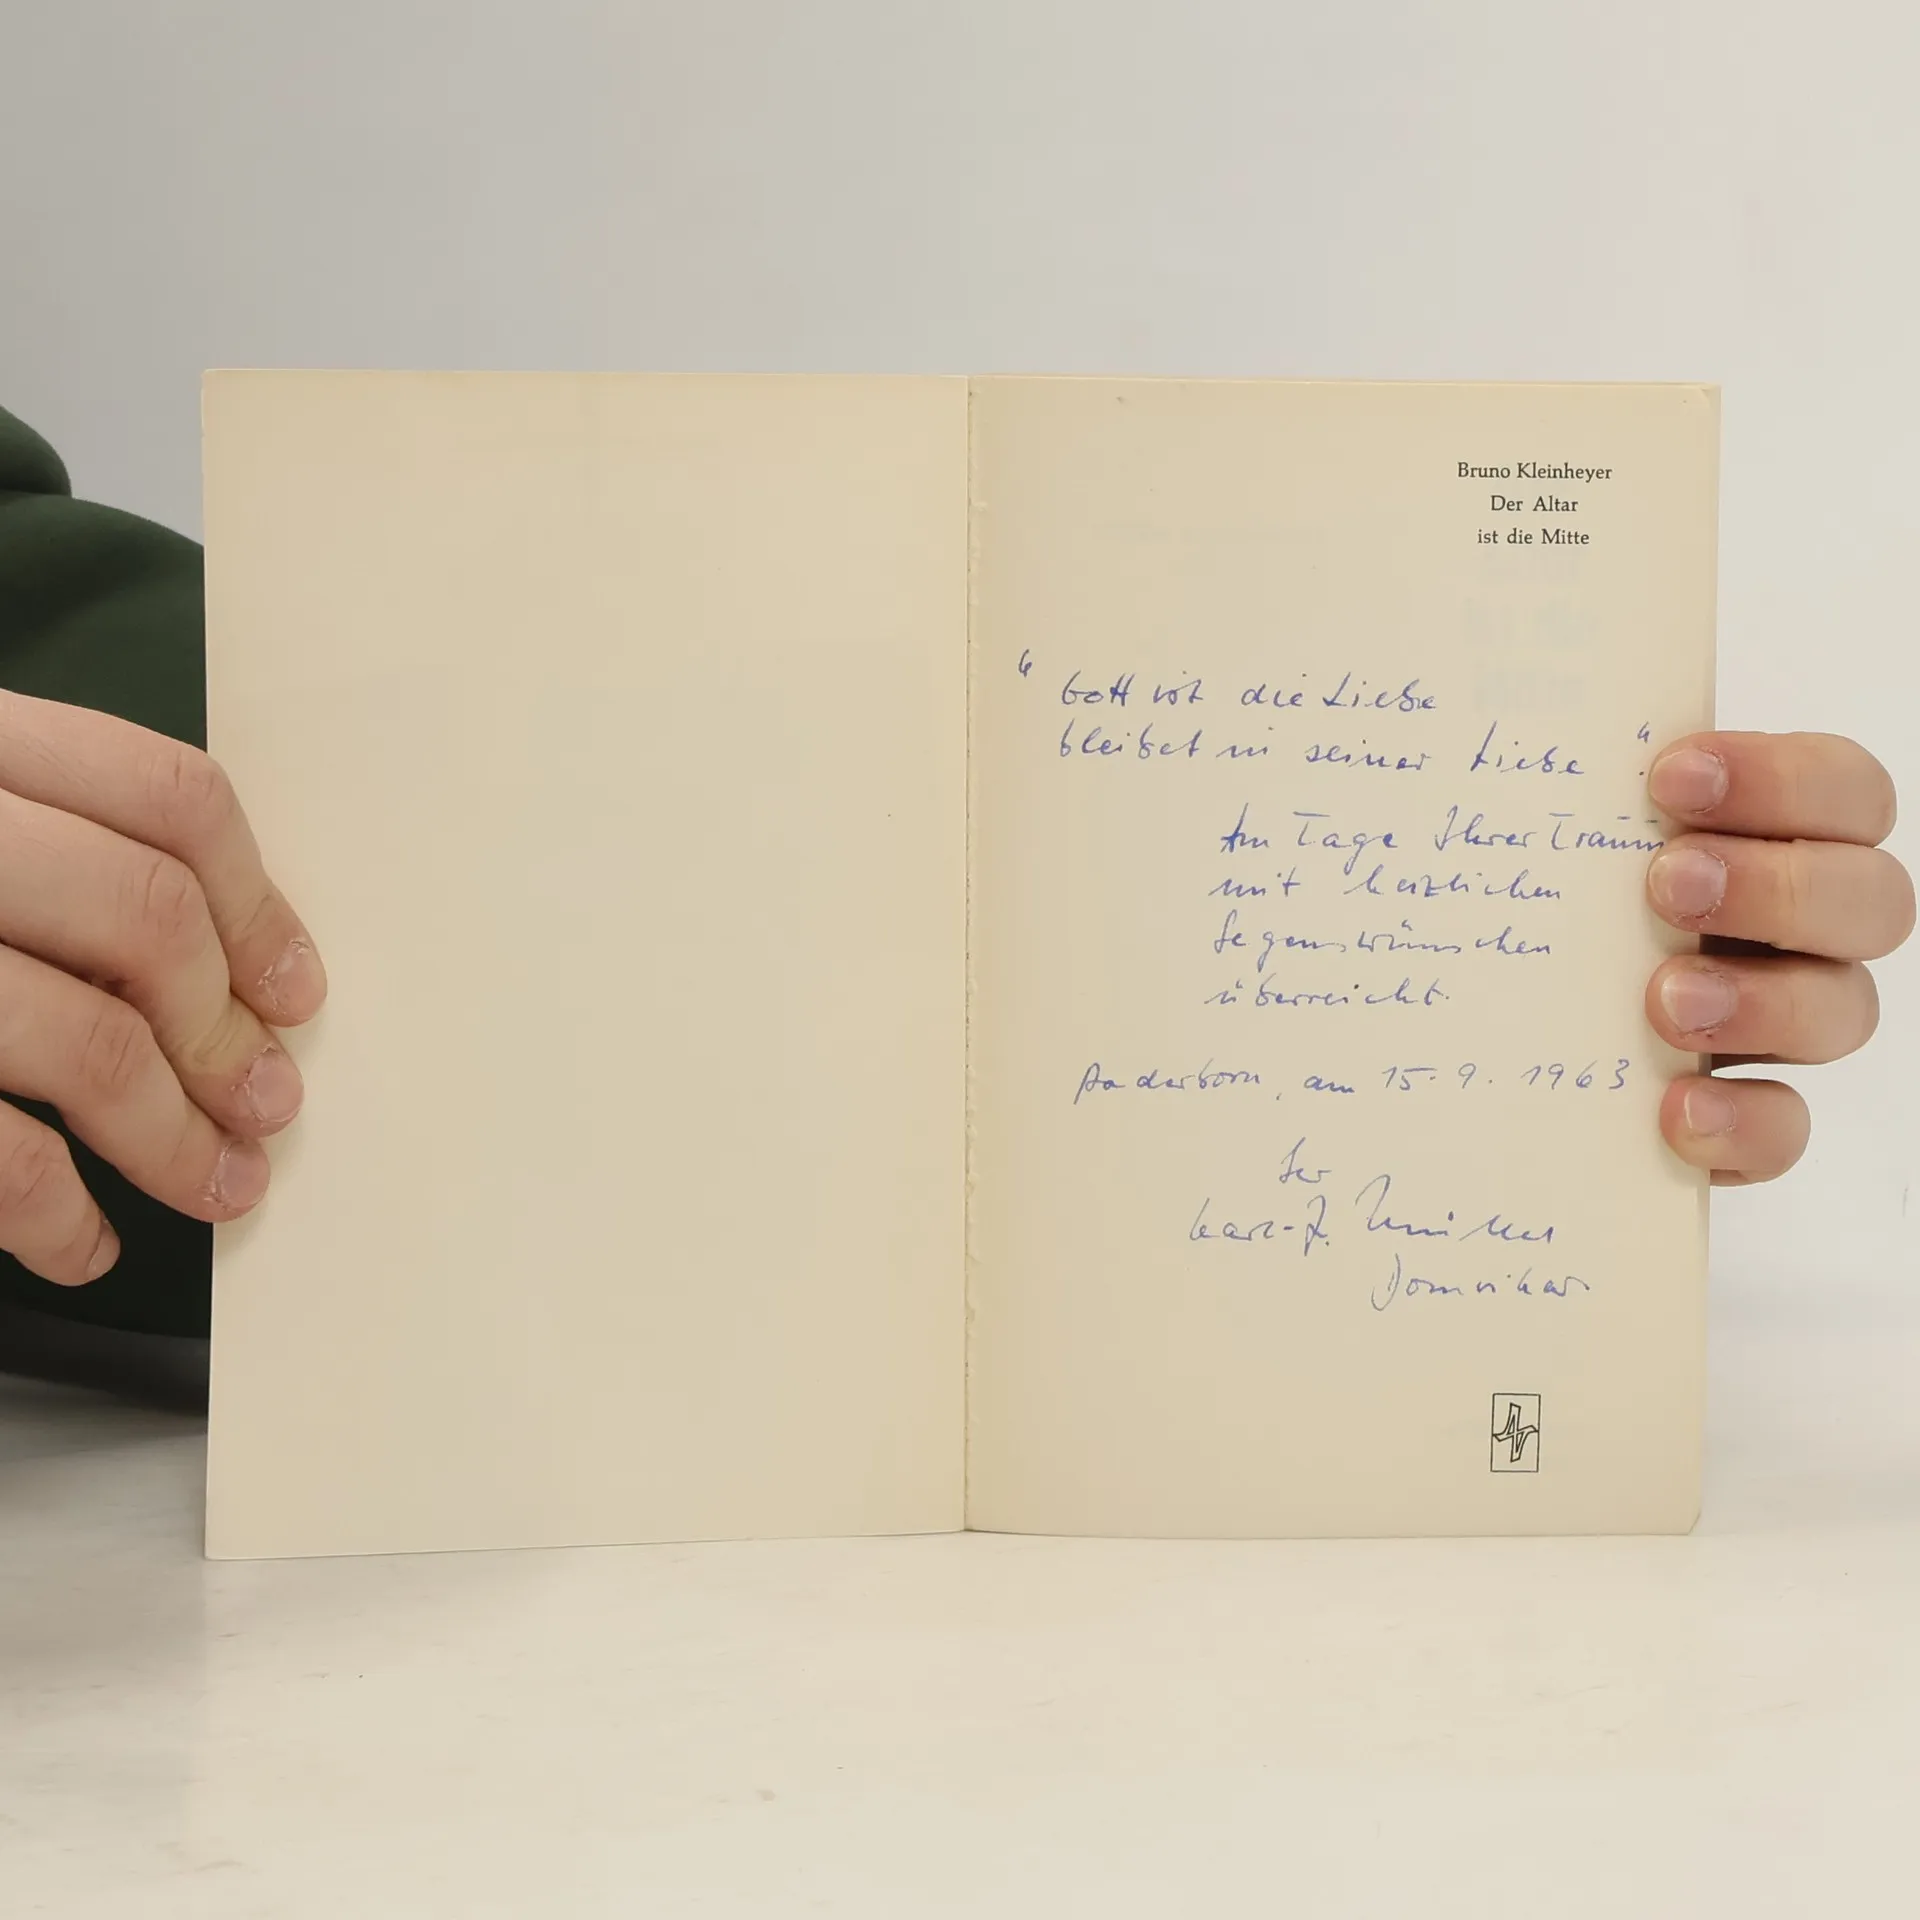 Bruno Kleinheyer
Der Altar
ist die Mitte
" Gott ist die Liebe
bleibet in seiner Liebe ."
Am Tage Ihrer
mit herzlichen
Segenswünschen
überreicht.
Paderborn, am 15.9.1963
Domvikar